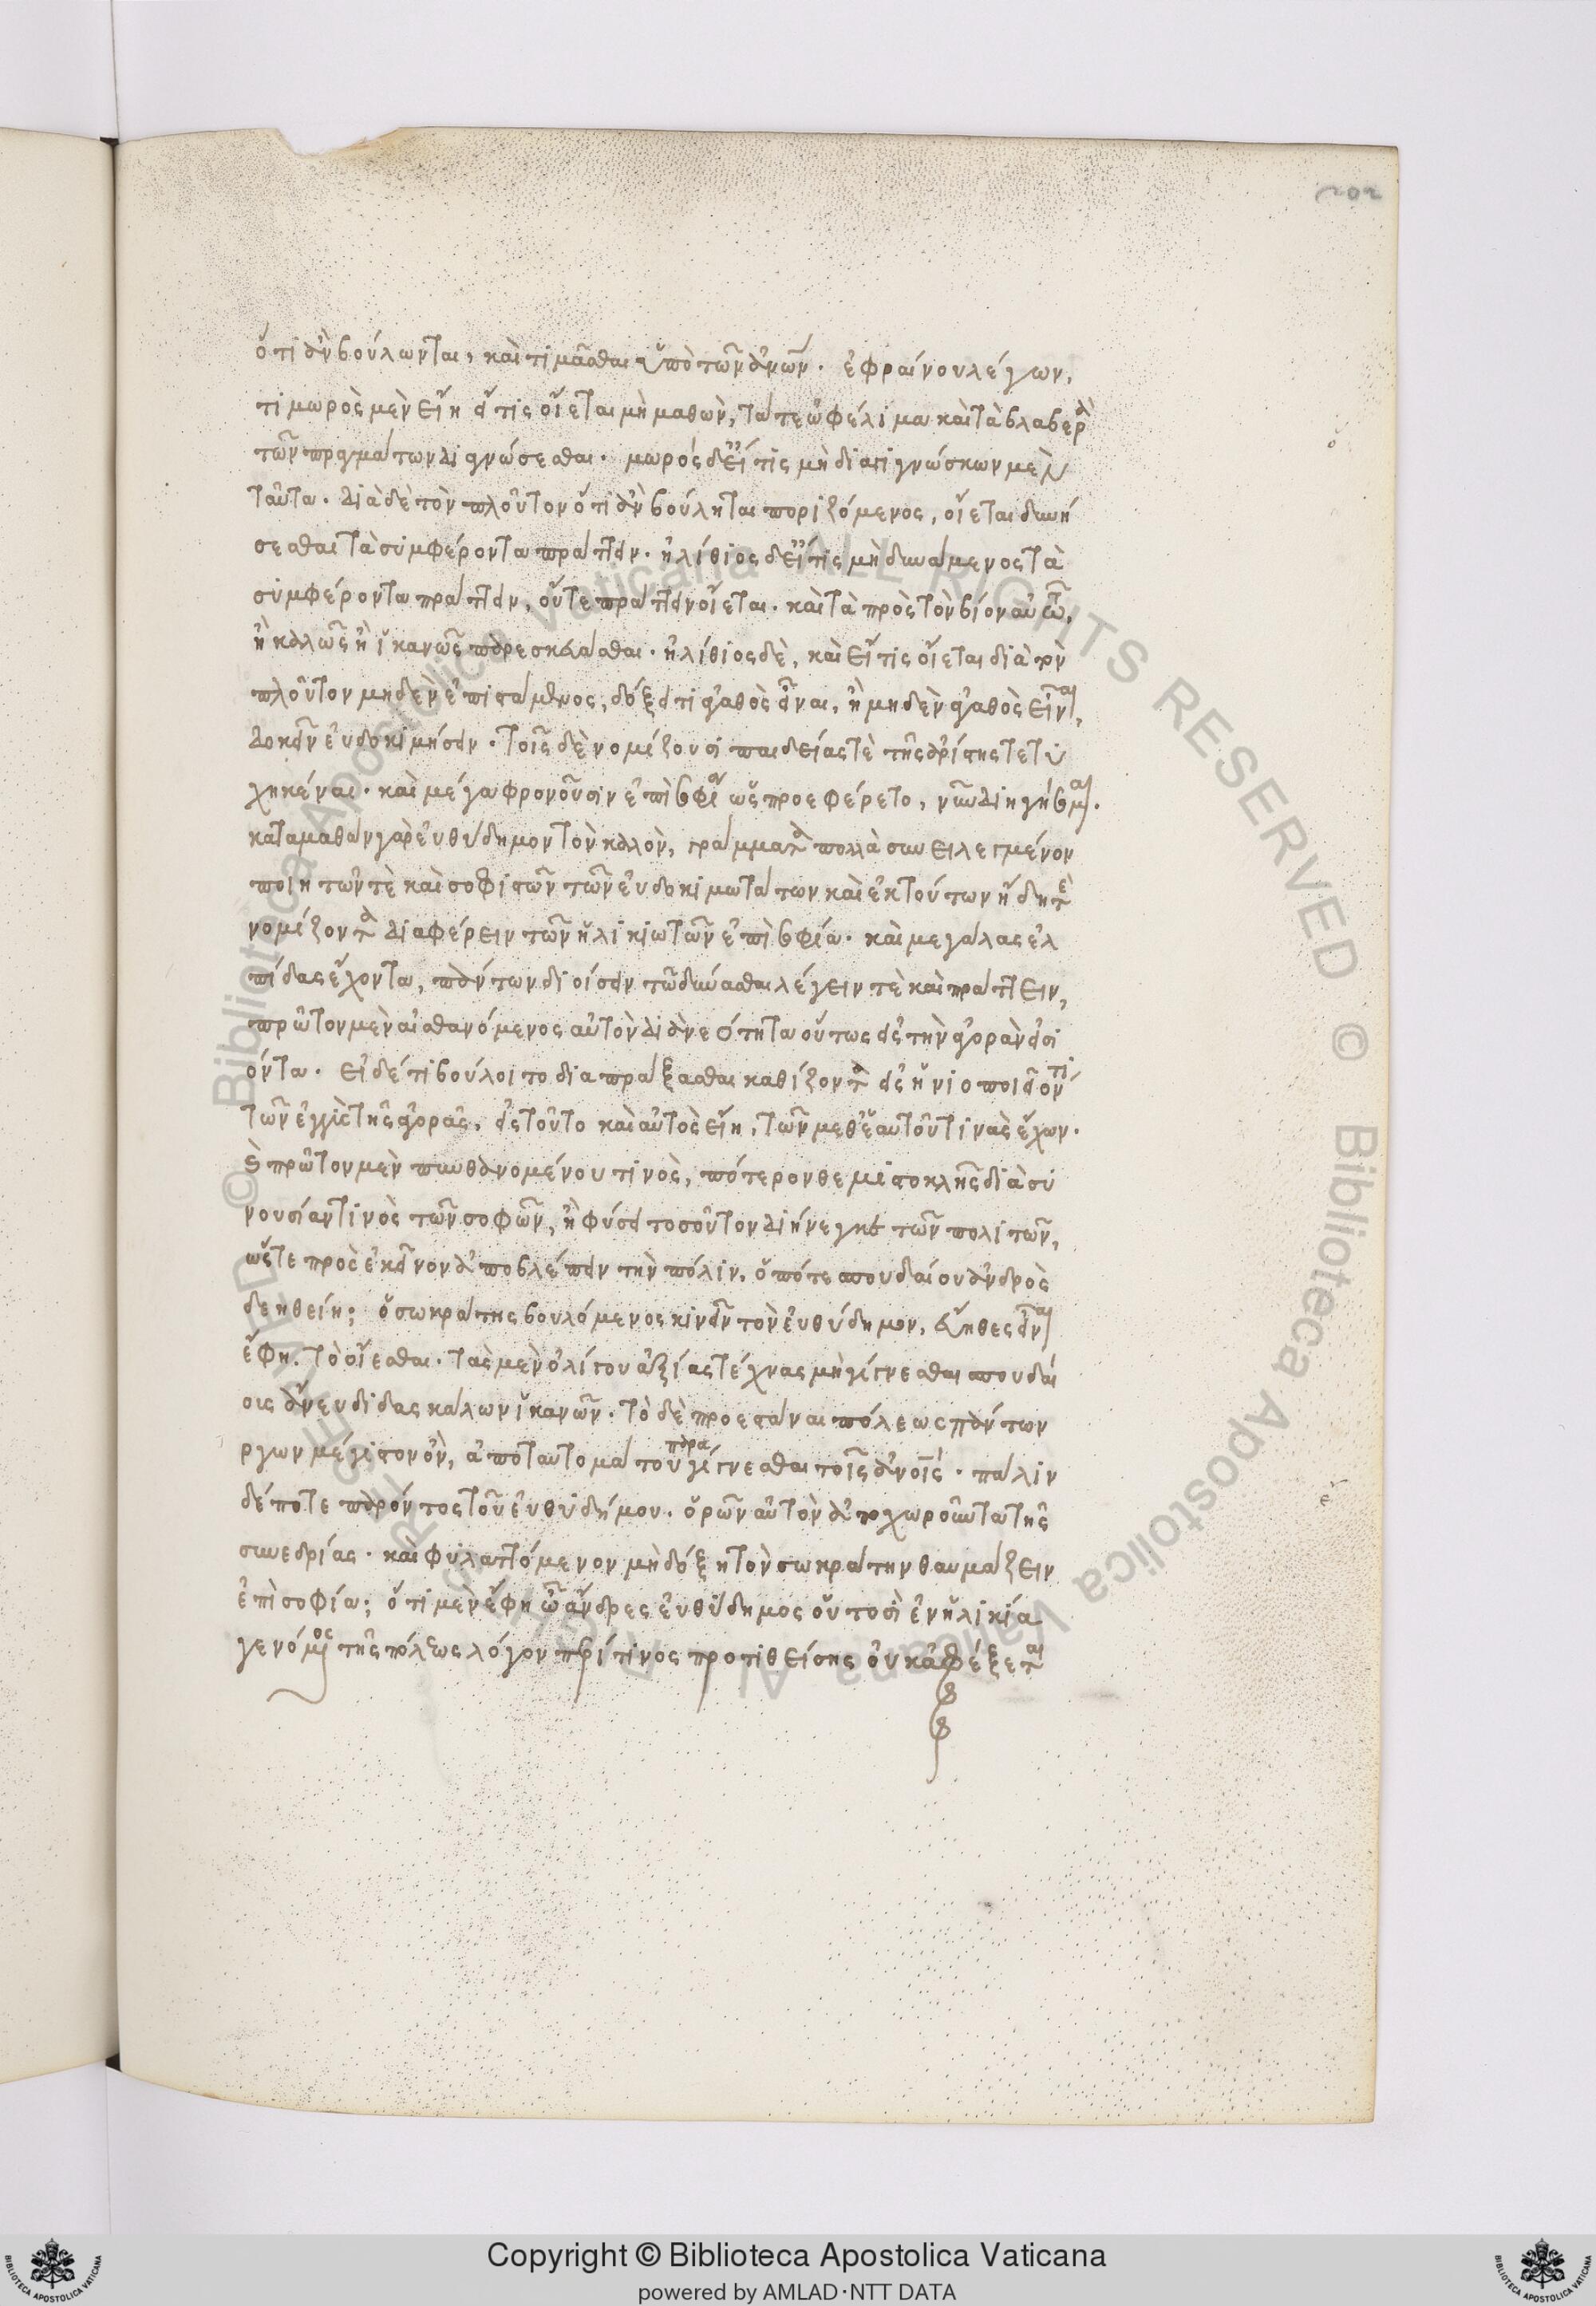 202
ὅτι ἂν βούλωνται, καὶ τιμᾶσθαι ὑπὸ τῶν ἀνων̃. ἐφραίνου λέγων,
τι μωρὸς μὲν εἴη εἴ τις οἴεται μὴ μαθὼν, τά τε ὠφέλιμα καὶ τὰ βλαβερὰ
τῶν πραγμάτων διαγνώσεσθαι. μωρός δ εἴ τις μὴ διαγιγνώσκων μὲν
ταῦτα. διὰ δὲ τὸν πλοῦτον ὅτι ἂν βούληται ποριζόμενος, οἴεται δυνή
σεσθαι τὰ συμφέροντα πράττειν. ἠλίθιος δ εἴ τις μὴ δυνάμενος τὰ
συμφέροντα πράττειν, οὔτε πράττειν οἴεται. καὶ τὰ πρὸς τὸν βίον αὐτῶ,
ἢ καλῶς ἢ ἱκανῶς παρεσκευάσθαι. ἠλίθιος δὲ, καὶ εἴ τις οἴεται διὰ τὸν
πλοῦτον μηδὲν ἐπιστάμενος, δόξει τι ἀγαθὸς εἶναι, ἢ μηδὲν ἀγαθὸς εἶναι,
δοκεῖν εὐδοκιμήσειν. τοῖς δὲ νομίζουσι παιδείας τὲ τῆς ἀρίστης τετυ
χηκέναι. καὶ μέγα φρονοῦσιν ἐπὶ σοφία ὡς προσεφέρετο, νῦν διηγήσομαι.
καταμαθὼν γὰρ εὐθύδημον τὸν καλὸν, γράμματα πολλὰ συνειλεγμένον
ποιητῶν τὲ καὶ σοφιστῶν τῶν εὐδοκιμωτάτων καὶ ἐκ τούτων ἤδη τὲ
νομίζοντα διαφέρειν τῶν ἡλικιωτῶν ἐπὶ σοφία. καὶ μεγάλας ἐλ
πίδας ἔχοντα, πάντων διοίσειν τῶ δύνασθαι λέγειν τὲ καὶ πράττειν,
πρῶτον μὲν αἰσθανόμενος αὐτὸν διὰ νεότητα οὔπως εἰς τὴν ἀγορὰν εἰσι
όντα. εἰ δέ τι βούλοιτο διαπράξασθαι καθίζοντα εἰς ἡνιοποιεῖόν τι
τῶν ἐγγὺς τῆς ἀγορᾶς, εἰς τοῦτο καὶ αὐτὸς εἴη, τῶν μεθ ἑαυτοῦ τινὰς ἔχων.
Καὶ πρῶτον μὲν πυνθανομένου τινὸς, πότερον θεμιστοκλῆς διὰ συ
νουσίαν τινὸς τῶν σοφῶν, ἢ φύσει τοσοῦτον διήνεγκε τῶν πολιτῶν,
ὥστε πρὸς ἐκεῖνον ἀποβλέπειν τὴν πόλιν, ὁπότε σπουδαίου ἀνδρὸς
δεηθείη; ὁ σωκράτης βουλόμενος κινεῖν τὸν εὐθύδημον, εὔηθες εἶναι
ἔφη. τὸ οἴεσθαι. τὰς μὲν ὀλίγου ἀξίας τέχνας μὴ γίγνεσθαι σπουδαί
οις ἄνευ διδασκάλων ἱκανῶν. τὸ δὲ προεστάναι πόλεως πάντων
ργων μέγιστον ὂν, ἀπὸ ταυτομάτου παραγίγνεσθαι τοῖς ἀνοις. πάλιν
δέ ποτε παρόντος τοῦ εὐθυδήμου. ὁρῶν αὐτὸν ἀποχωροῦντα τῆς
συνεδρίας. καὶ φυλαττόμενον μὴ δόξη τὸν σωκράτην θαυμάζειν
ἐπὶ σοφία; ὅτι μὲν ἔφη ὦ ἄνδρες εὐθύδημος οὑτοσὶ ἐν ἡλικία
γενόμενος τῆς πόλεως λόγον περί τινος προτιθείσης οὐκ ἀφέξεται
© Biblioteca Apostolica Vaticana ALL RIGHTS RESERVED
Copyright © Biblioteca Apostolica Vaticana
powered by AMLAD·NTT DATA
BIBLIOTECA APOSTOLICA VATICANA
BIBLIOTECA APOSTOLICA VATICANA